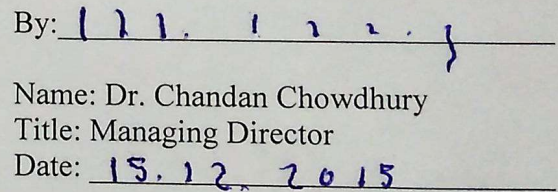 By:
Name: Dr. Chandan Chowdhury
Title: Managing Director
Date: 15.12.2015